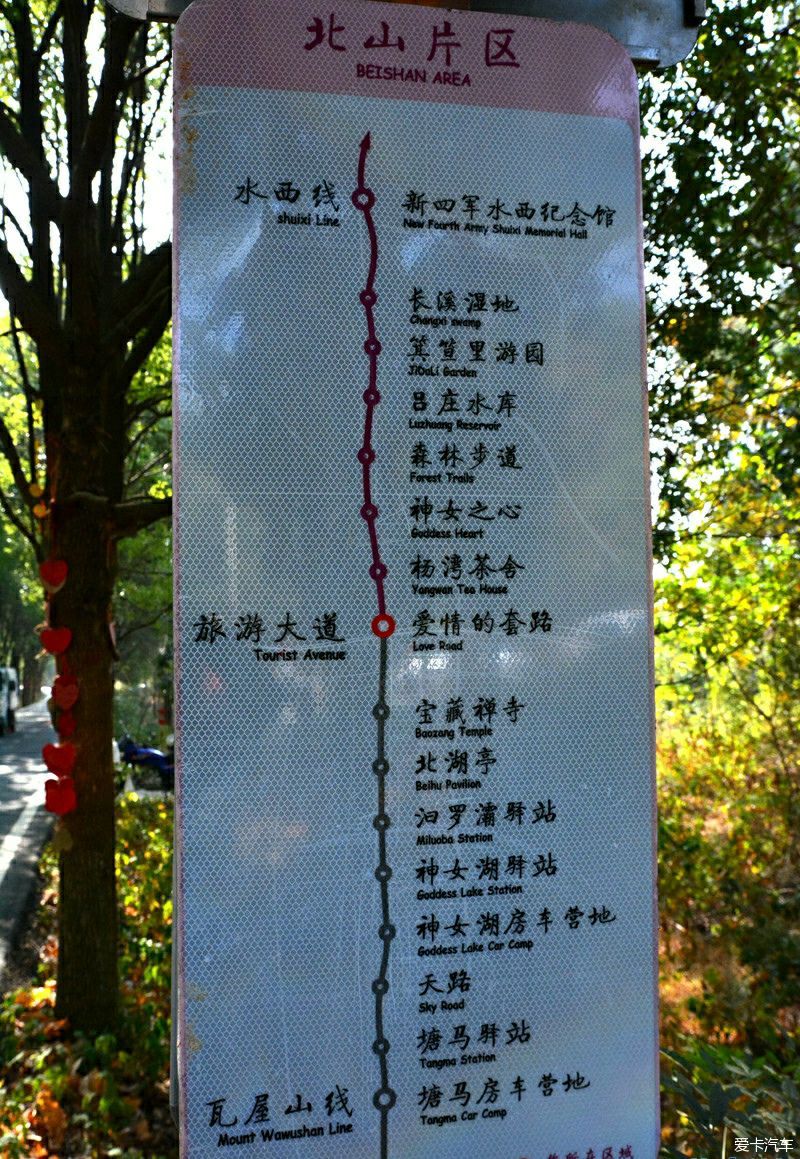 北山片区
BEISHAN AREA
水西线
shuixi Line
新四军水西纪念馆
New Fourth Army Shuixi Memorial Hall
长溪湿地
Changxi swamp
箕笪里游园
JiDaLi Garden
吕庄水库
Luzhuang Reservoir
森林步道
Forest Trails
神女之心
Goddess Heart
杨湾茶舍
Yangwan Tea House
旅游大道
Tourist Avenue
爱情的套路
Love Road
宝藏禅寺
Baozang Temple
北湖亭
Beihu Pavilion
汨罗灞驿站
Miluoba Station
神女湖驿站
Goddess Lake Station
神女湖房车营地
Goddess Lake Car Camp
天路
Sky Road
塘马驿站
Tangma Station
瓦屋山线
Mount Wawushan Line
塘马房车营地
Tangma Car Camp
所在区域
爱卡汽车